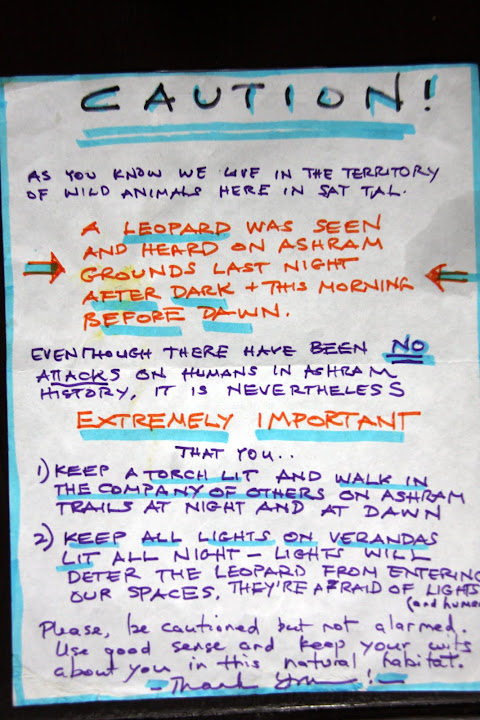 CAUTION!
AS YOU KNOW WE LIVE IN THE TERRITORY
OF WILD ANIMALS HERE IN SAT TAL.
A LEOPARD WAS SEEN
AND HEARD ON ASHRAM
GROUNDS LAST NIGHT
AFTER DARK + THIS MORNING
BEFORE DAWN.
EVENTHOUGH THERE HAVE BEEN NO
ATTACKS ON HUMANS IN ASHRAM
HISTORY, IT IS NEVERTHELESS
EXTREMELY IMPORTANT
THAT YOU..
1) KEEP A TORCH LIT AND WALK IN
THE COMPANY OF OTHERS ON ASHRAM
TRAILS AT NIGHT AND AT DAWN
2) KEEP ALL LIGHTS ON VERANDAS
LIT ALL NIGHT – LIGHTS WILL
DETER THE LEOPARD FROM ENTERING
OUR SPACES. THEY'RE AFRAID OF LIGHTS
(and
Please, be cautioned but not alarmed.
Use good sense and keep your wits
about you in this natural habitat.
- Thank You! -